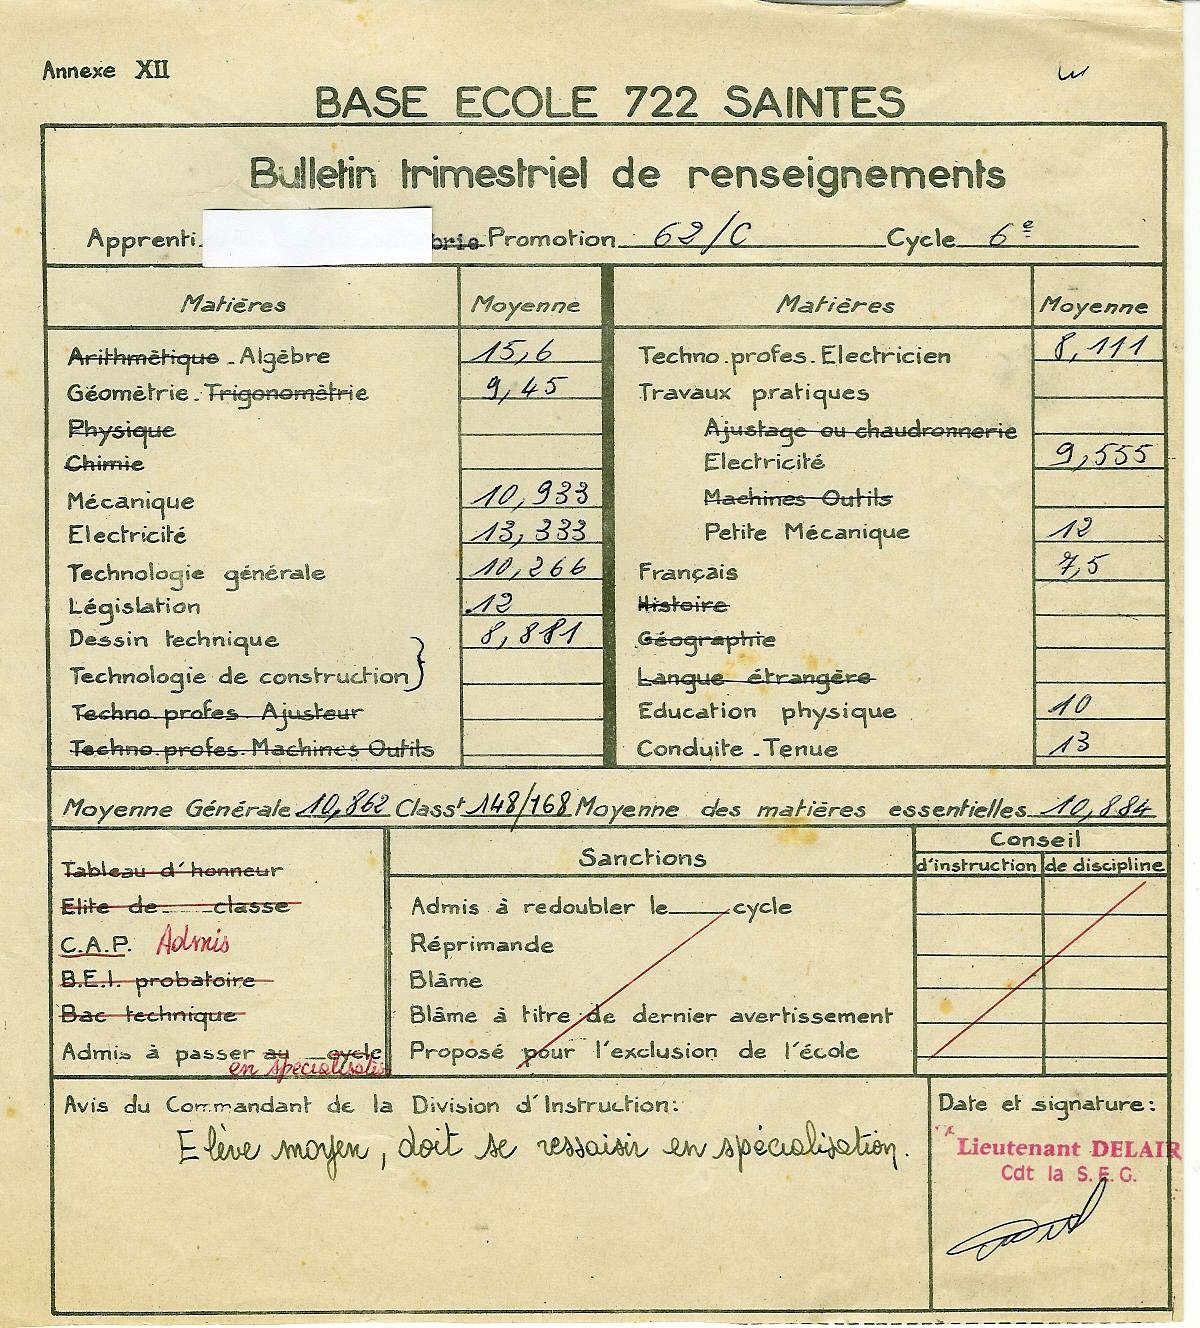 Annexe XII
BASE ECOLE 722 SAINTES
Bulletin trimestriel de renseignements
Apprenti brie Promotion 62/C Cycle 6e
Matières Moyenne Matières Moyenne
Arithmétique - Algèbre 15,6 Techno. profes. Electricien 8,111
Géométrie - Trigonométrie 9,45 Travaux pratiques
Physique Ajustage ou chaudronnerie
Chimie Electricité 9,555
Mécanique 10,933 Machines Outils
Electricité 13,333 Petite Mécanique 12
Technologie générale 10,266 Français 7,5
Législation 12 Histoire
Dessin technique } 8,881 Géographie
Technologie de construction Langue étrangère
Techno. profes. Ajusteur Education physique 10
Techno. profes. Machines Outils Conduite - Tenue 13
Moyenne Générale 10,862 Classt 148/168 Moyenne des matières essentielles 10,884
Tableau d'honneur
Elite de classe
C.A.P. Admis
B.E.I. probatoire
Bac technique
Admis à passer au cycle
en spécialisatio
Sanctions
Admis à redoubler le cycle
Réprimande
Blâme
Blâme à titre de dernier avertissement
Proposé pour l'exclusion de l'école
Conseil
d'instruction de discipline
Avis du Commandant de la Division d'Instruction:
Elève moyen, doit se ressaisir en spécialisation.
Date et signature:
Lieutenant DELAIR
Cdt la S.E.G.